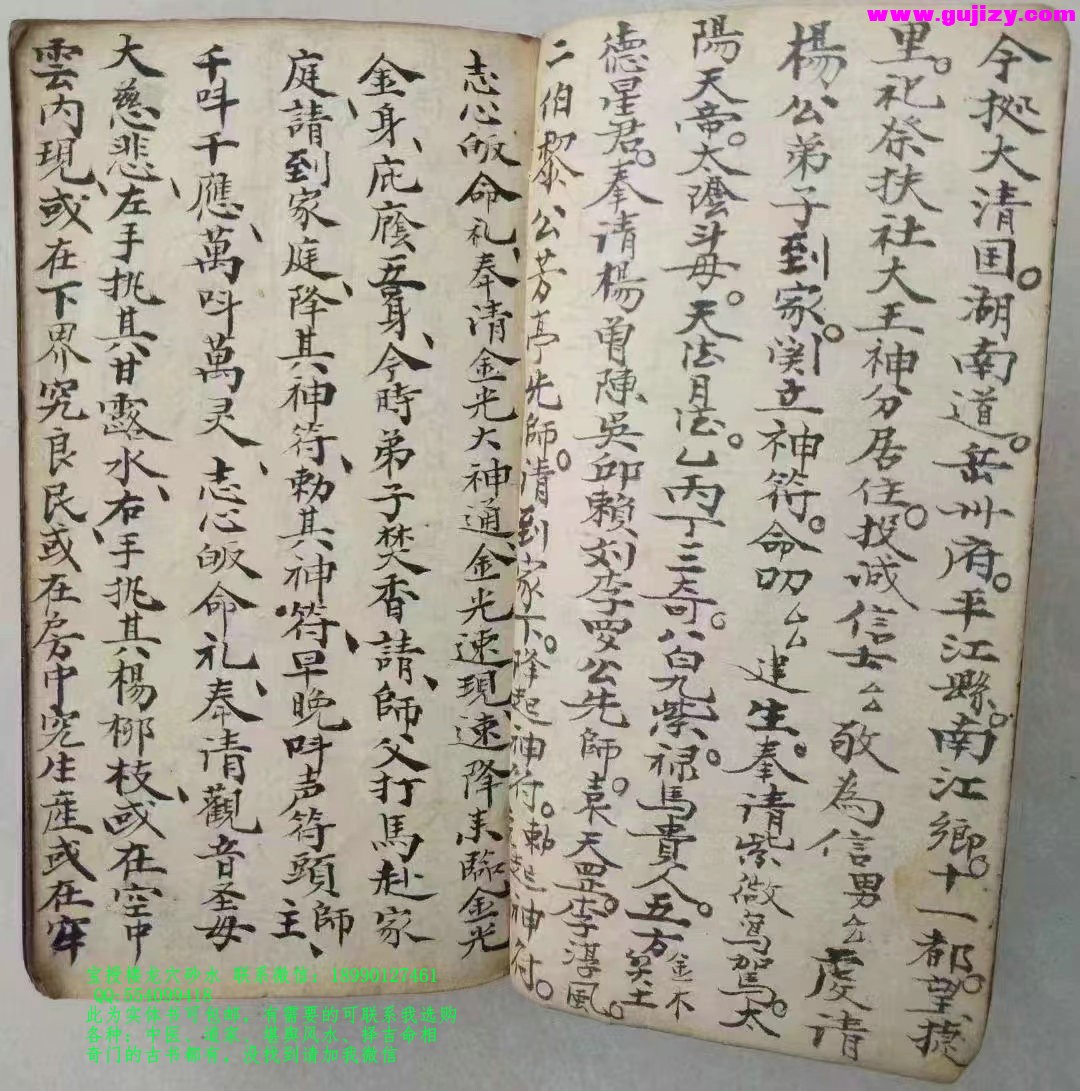 www.gujizy.com
今拠大清囯。湖南道。岳州府。平江縣。南江鄉。十一都。望捷
里。祀祭扶社大王神分居住。投诚信士厶厶敬為信男厶厶虔请
楊公弟子到家。関立神符。命叨厶厶建生。奉清紫微鸾駕。太
陽天帝。太陰斗母。天德月德。乙丙丁三奇。八白九紫。禄馬貴人。五方金木
德星君。奉清楊曾陳吳邱賴刘李夒公先師。袁天罡。李淳風。
二伯黎公芳亭先師。清到家下。降起神符。勅起神符。
志心皈命礼、奉清金光大神通、金光速現、速降来臨金光
金身、庇廕吾身、今時弟子焚香請、師父打馬赴家
庭請到家庭、降其神符、勅其神符、早晚呌声符頭師主、
千呌千應、萬呌萬灵、志心皈命礼、奉清觀音圣母
大慈悲、左手執其甘露水、右手執其楊柳枝、或在空中
雲内現或在下界究良民、或在房中究生産或在
言授楼龙穴砂水 联系微信：18990127461
QQ:554099416
此为实体书可包邮，有需要的可联系我选购
各种：中医、道家、堪舆风水、择吉命相
奇门的古书都有，没找到请加我微信